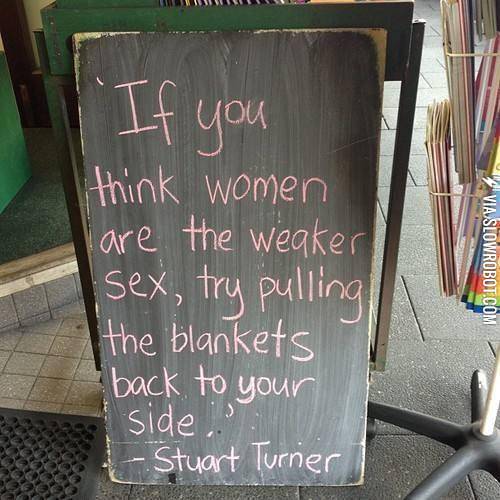 'If you
think women
are the weaker
sex, try pulling
the blankets
back to your
side.'
- Stuart Turner
VIA SLOWROBOT.COM